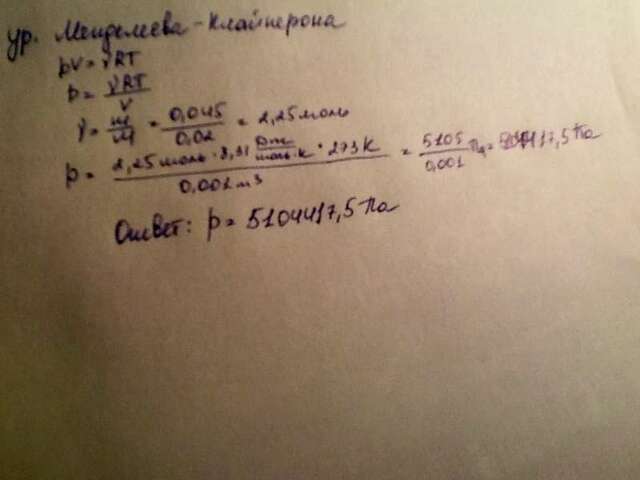 ур. Менделеева-Клайперона
pV = γRT
p = γRT / V
γ = m / M = 0,045 / 0,02 = 2,25 моль
p = 2,25 моль · 8,31 Дж / моль·К · 273 К / 0,001 м³ = 5105 / 0,001 Па = 17,5 Па
Ответ: p = 5104417,5 Па